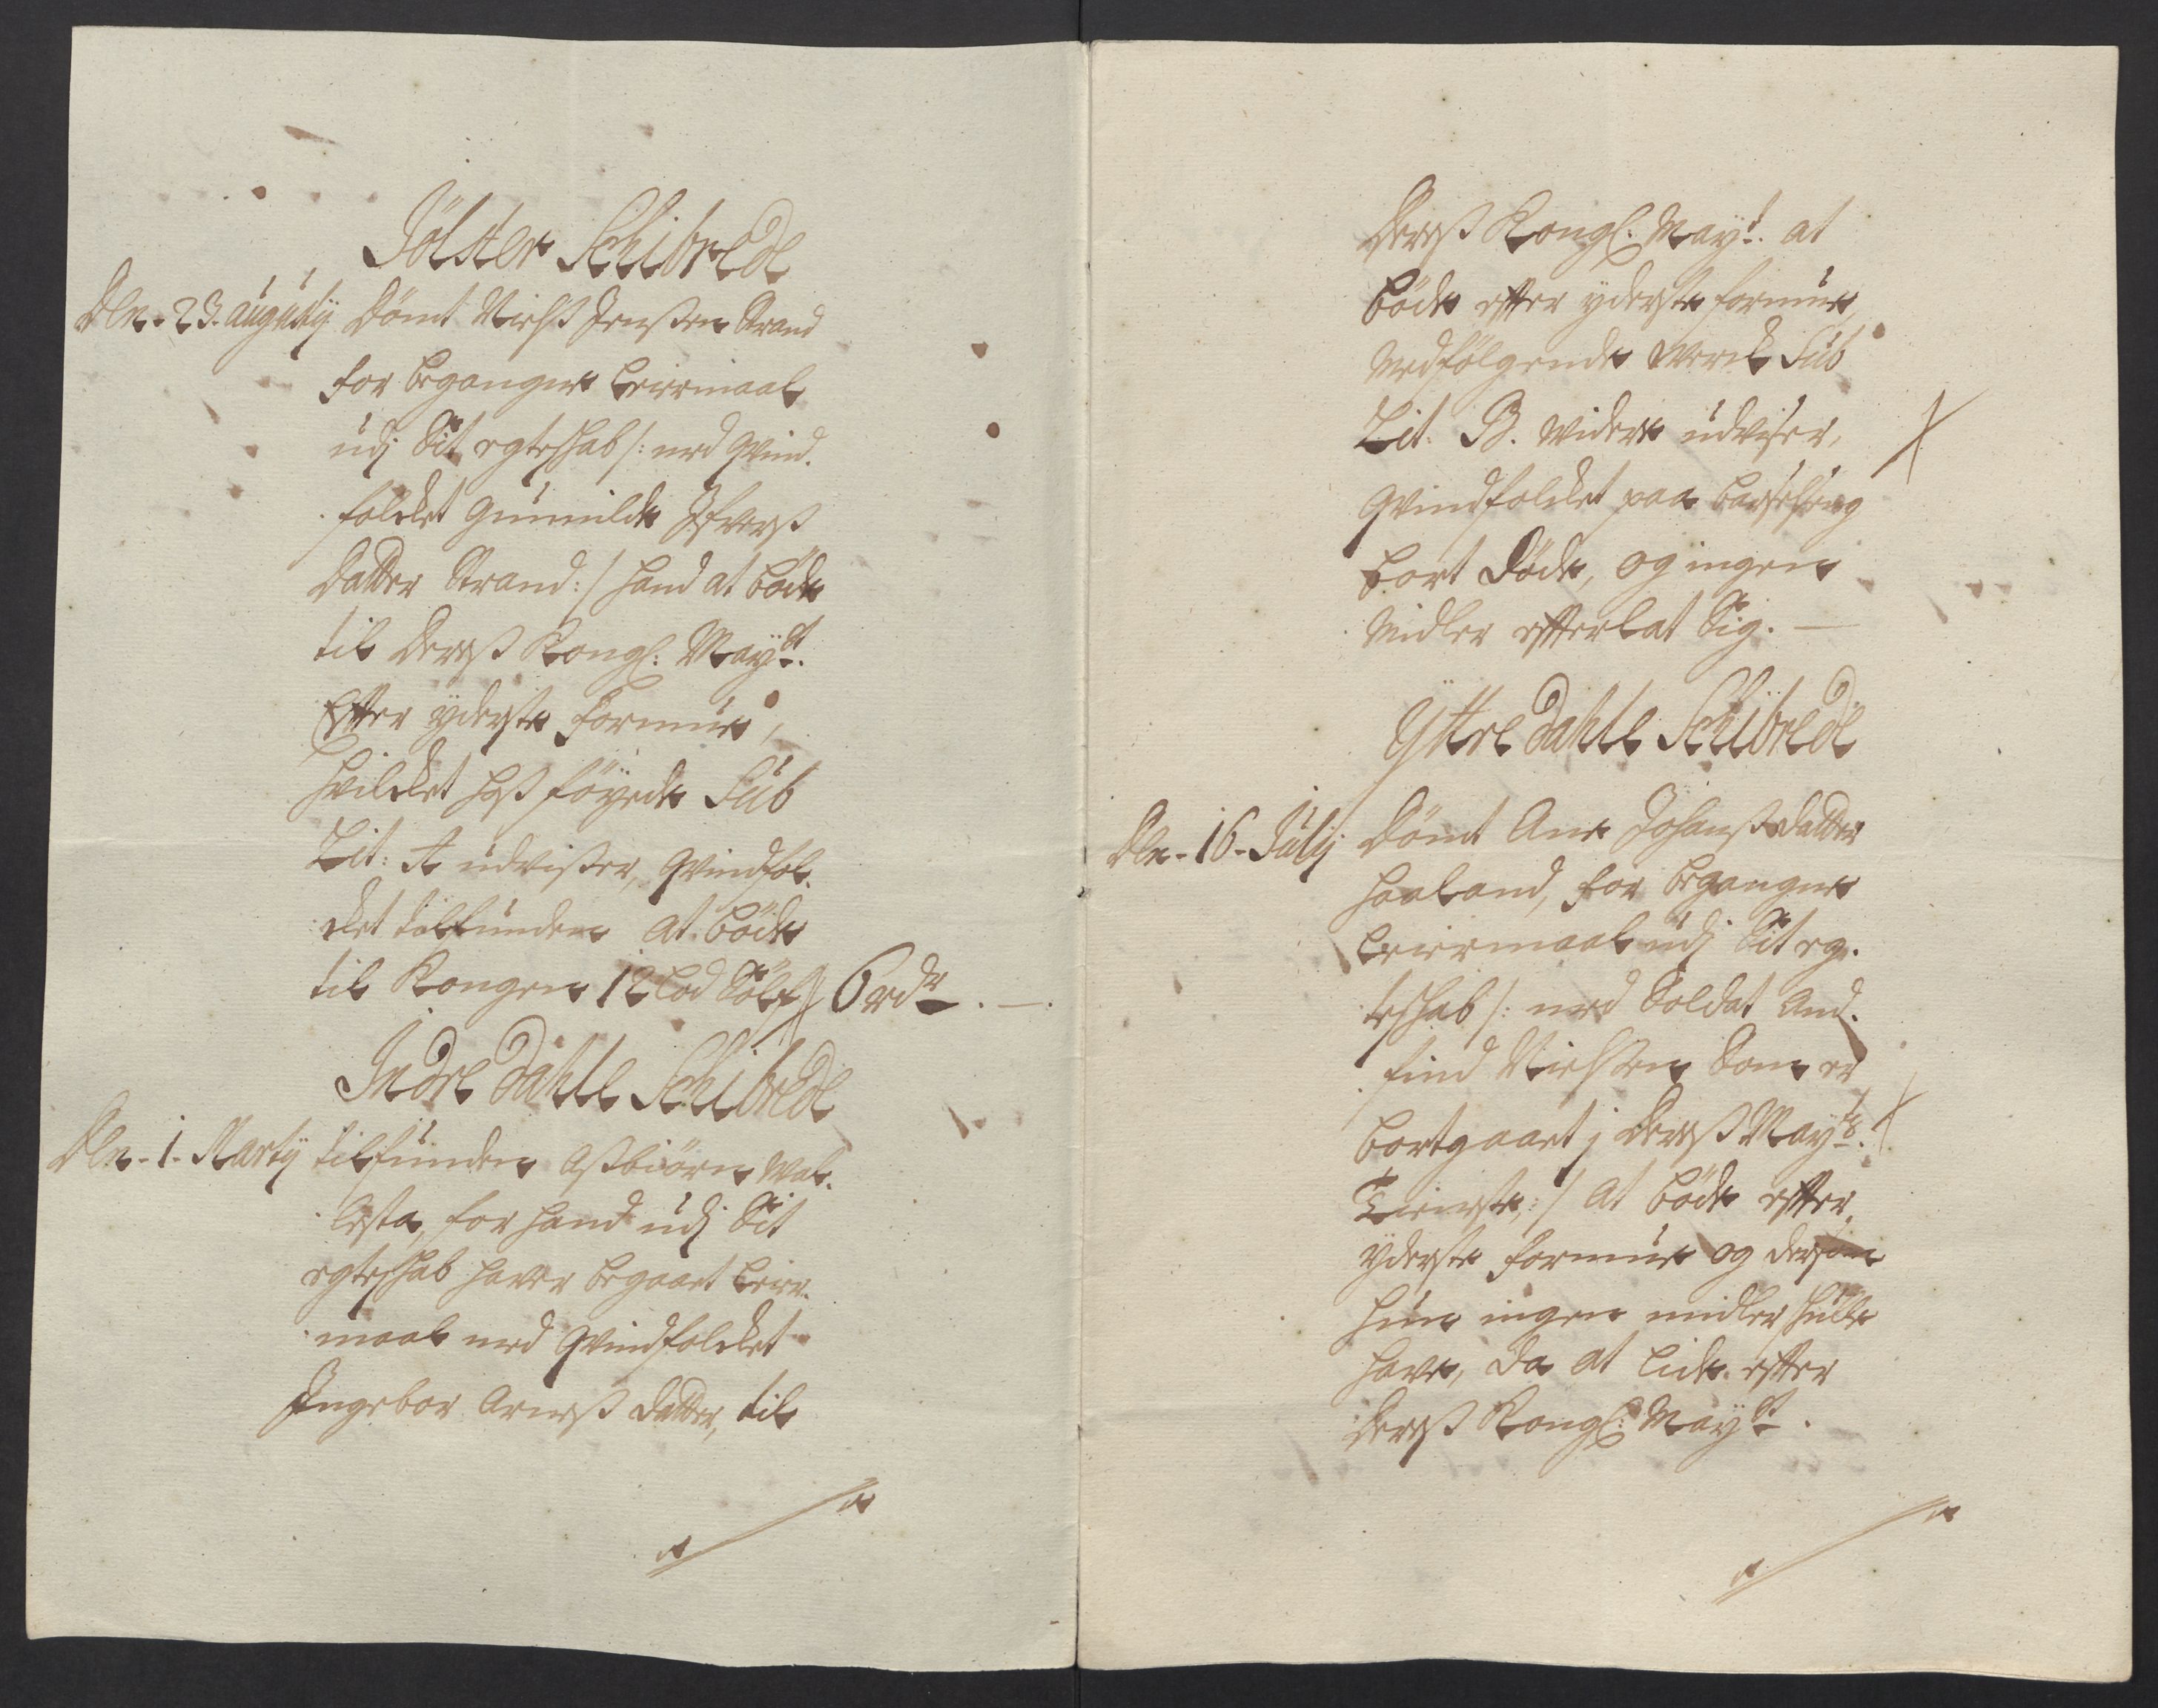 Jölster Schibrede
Dln. 23. augustij Dömt Nielß Jenßen Strand
for begangne leirmaal
udj Sit egteschab /: med qvind-
folcket Gunnilde Ifverß
Datter Strand :/ hand at böde
til Dereß Kongl: Mayst.
Efter yderste formue,
hvilcket hoß föyede Sub
Lit: A udvißer, qvindfol-
cket tilfunden at böde
til Kongen 12 lod Sölf 6 rdr
Indre Dahle Schibrede
Dln. 1. Martij tilfunden Aßbiörn
for hand udj Sit
egteschab haver begaaet leir-
maal med qvindfolcket
Ingebor Arneß datter, til
Dereß Kongl: Mayt. at
böde efter yderste formue,
medfölgende verck Sub
Lit. B. widere udviser,
qvindfolcket paa barselseng
bort döde, og ingen
midler efterlat Sig.
Yttre Dahle Schibrede
Dln. 16. Julij Dömt Ane Johanßdatter
haaland, for begangne
leirmaal udj Sit eg-
teschab /: med Soldat And-
find Nielßen Som er
bortgaaet j Dereß Mayts.
Tieneste, :/ at böde efter
yderste formue og dersom
hun ingen midler schulle
have, da at lide efter
Dereß Kongl: Mayst.